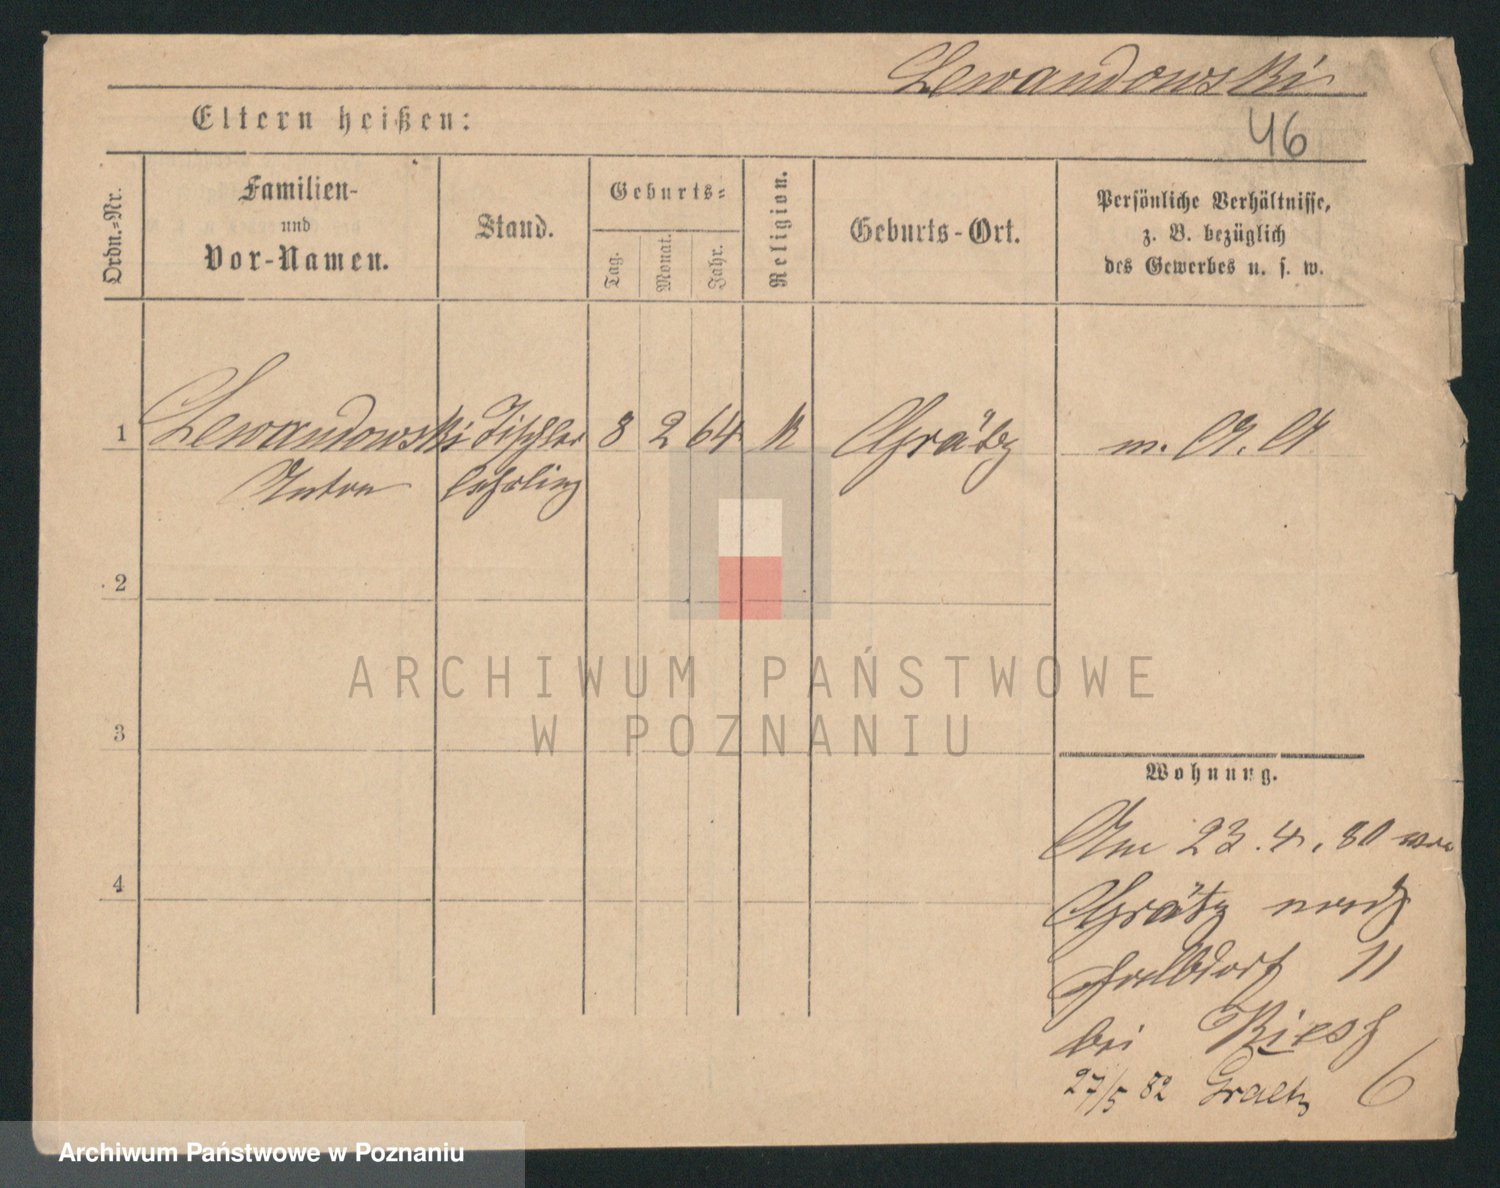 Lewandowski
Eltern heißen:
46
Ordn.-Nr.
Familien-
und
Vor-Namen.
Stand.
Geburts-
Tag.
Monat.
Jahr.
Religion.
Geburts-Ort.
Persönliche Verhältnisse,
z. B. bezüglich
des Gewerbes u. s. w.
1 Lewandowski Tischler 8 2 64 K Grätz m. A. A.
Anton lehrling
2
3
4
Wohnung.
Am 23.4.80 von
Grätz nach
Halbdorf 11
bei Kiesh
27/5 82 Graetz
ARCHIWUM PAŃSTWOWE
W POZNANIU
Archiwum Państwowe w Poznaniu